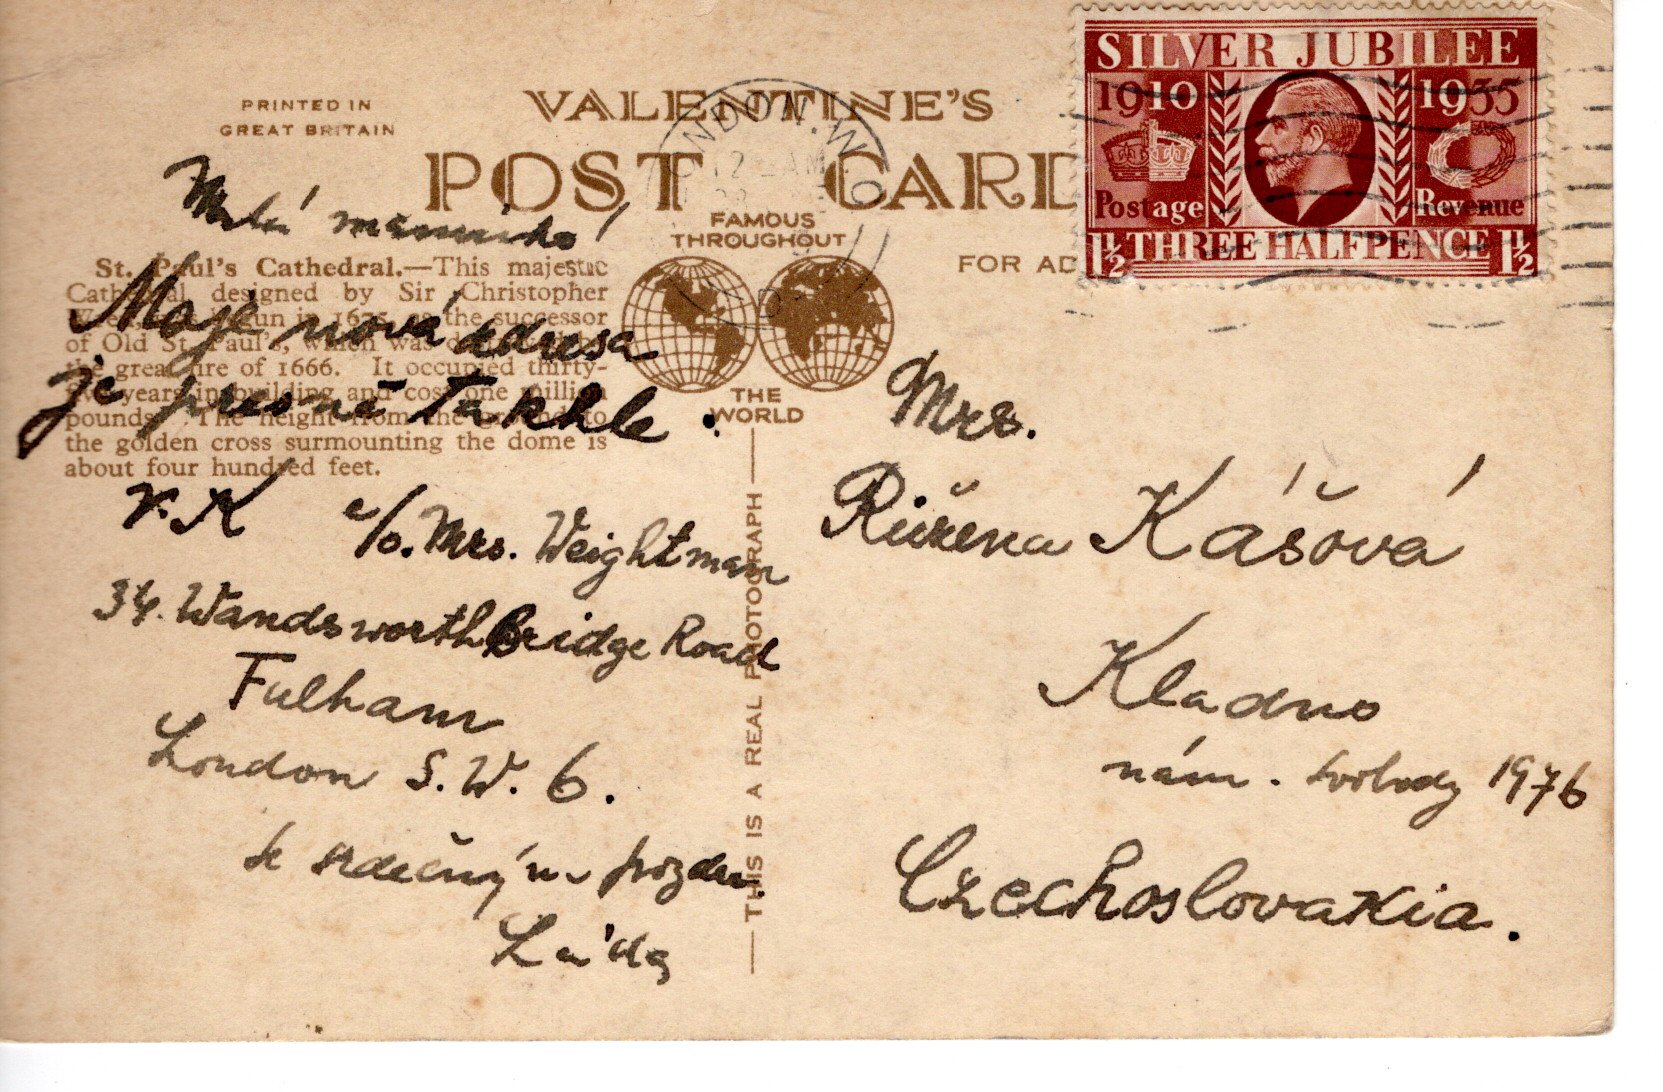 PRINTED IN
GREAT BRITAIN
VALENTINE'S
POST CARD
FAMOUS
THROUGHOUT
THE
WORLD
FOR AD
SILVER JUBILEE
1910 1935
Postage Revenue
1½ THREE HALFPENCE 1½
LONDON. W.
12 - AM
St. Paul's Cathedral.—This majestic
Cathedral, designed by Sir Christopher
Wren, begun in 1675, as the successor
of Old St. Paul's, which was
the great fire of 1666. It occupied thirty-
five years in building and cost one million
pounds. The height from the ground to
the golden cross surmounting the dome is
about four hundred feet.
THIS IS A REAL PHOTOGRAPH
maminko!
Moje nová adresa
je přesně takhle.
K c/o. Mrs. Weightman
34. Wandsworth Bridge Road
Fulham
London S.W. 6.
srdečným pozdr.
Láďa
Mrs.
Růžena Kášová
Kladno
nám. svobody 1976
Czechoslovakia.